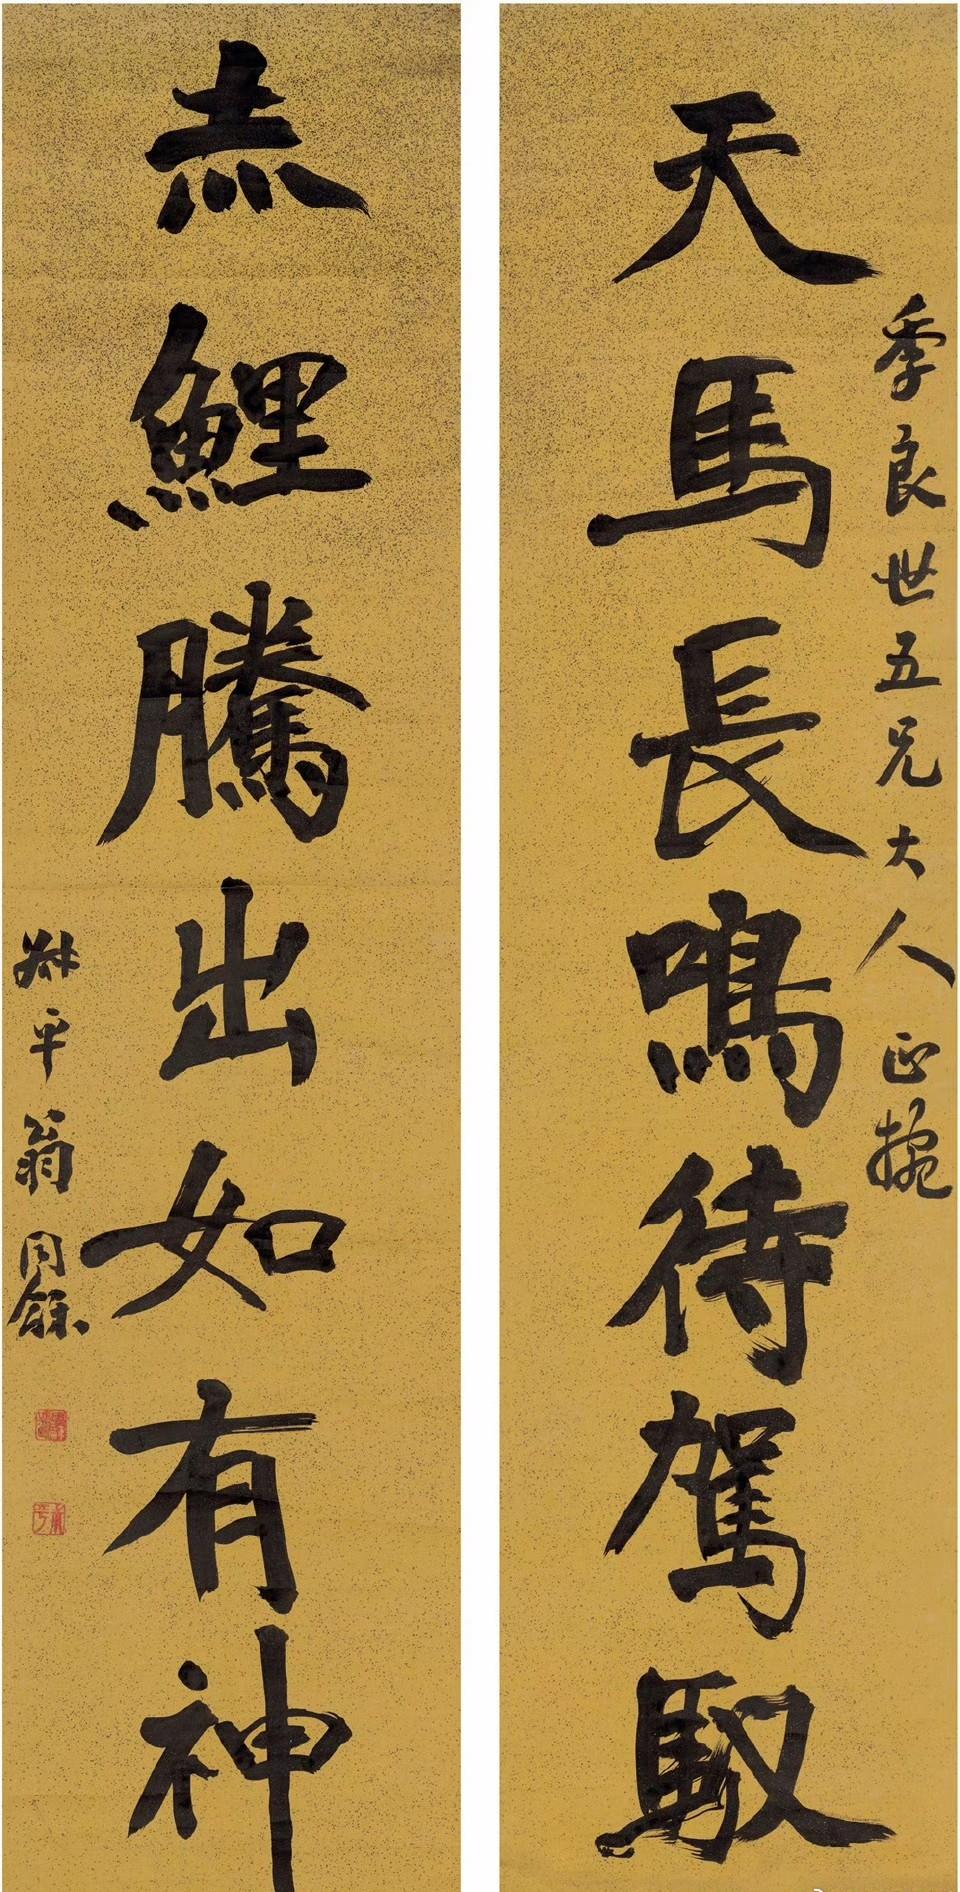 季良世五兄大人正捥
天馬長鳴待駕馭
赤鯉騰出如有神
叔平翁同龢